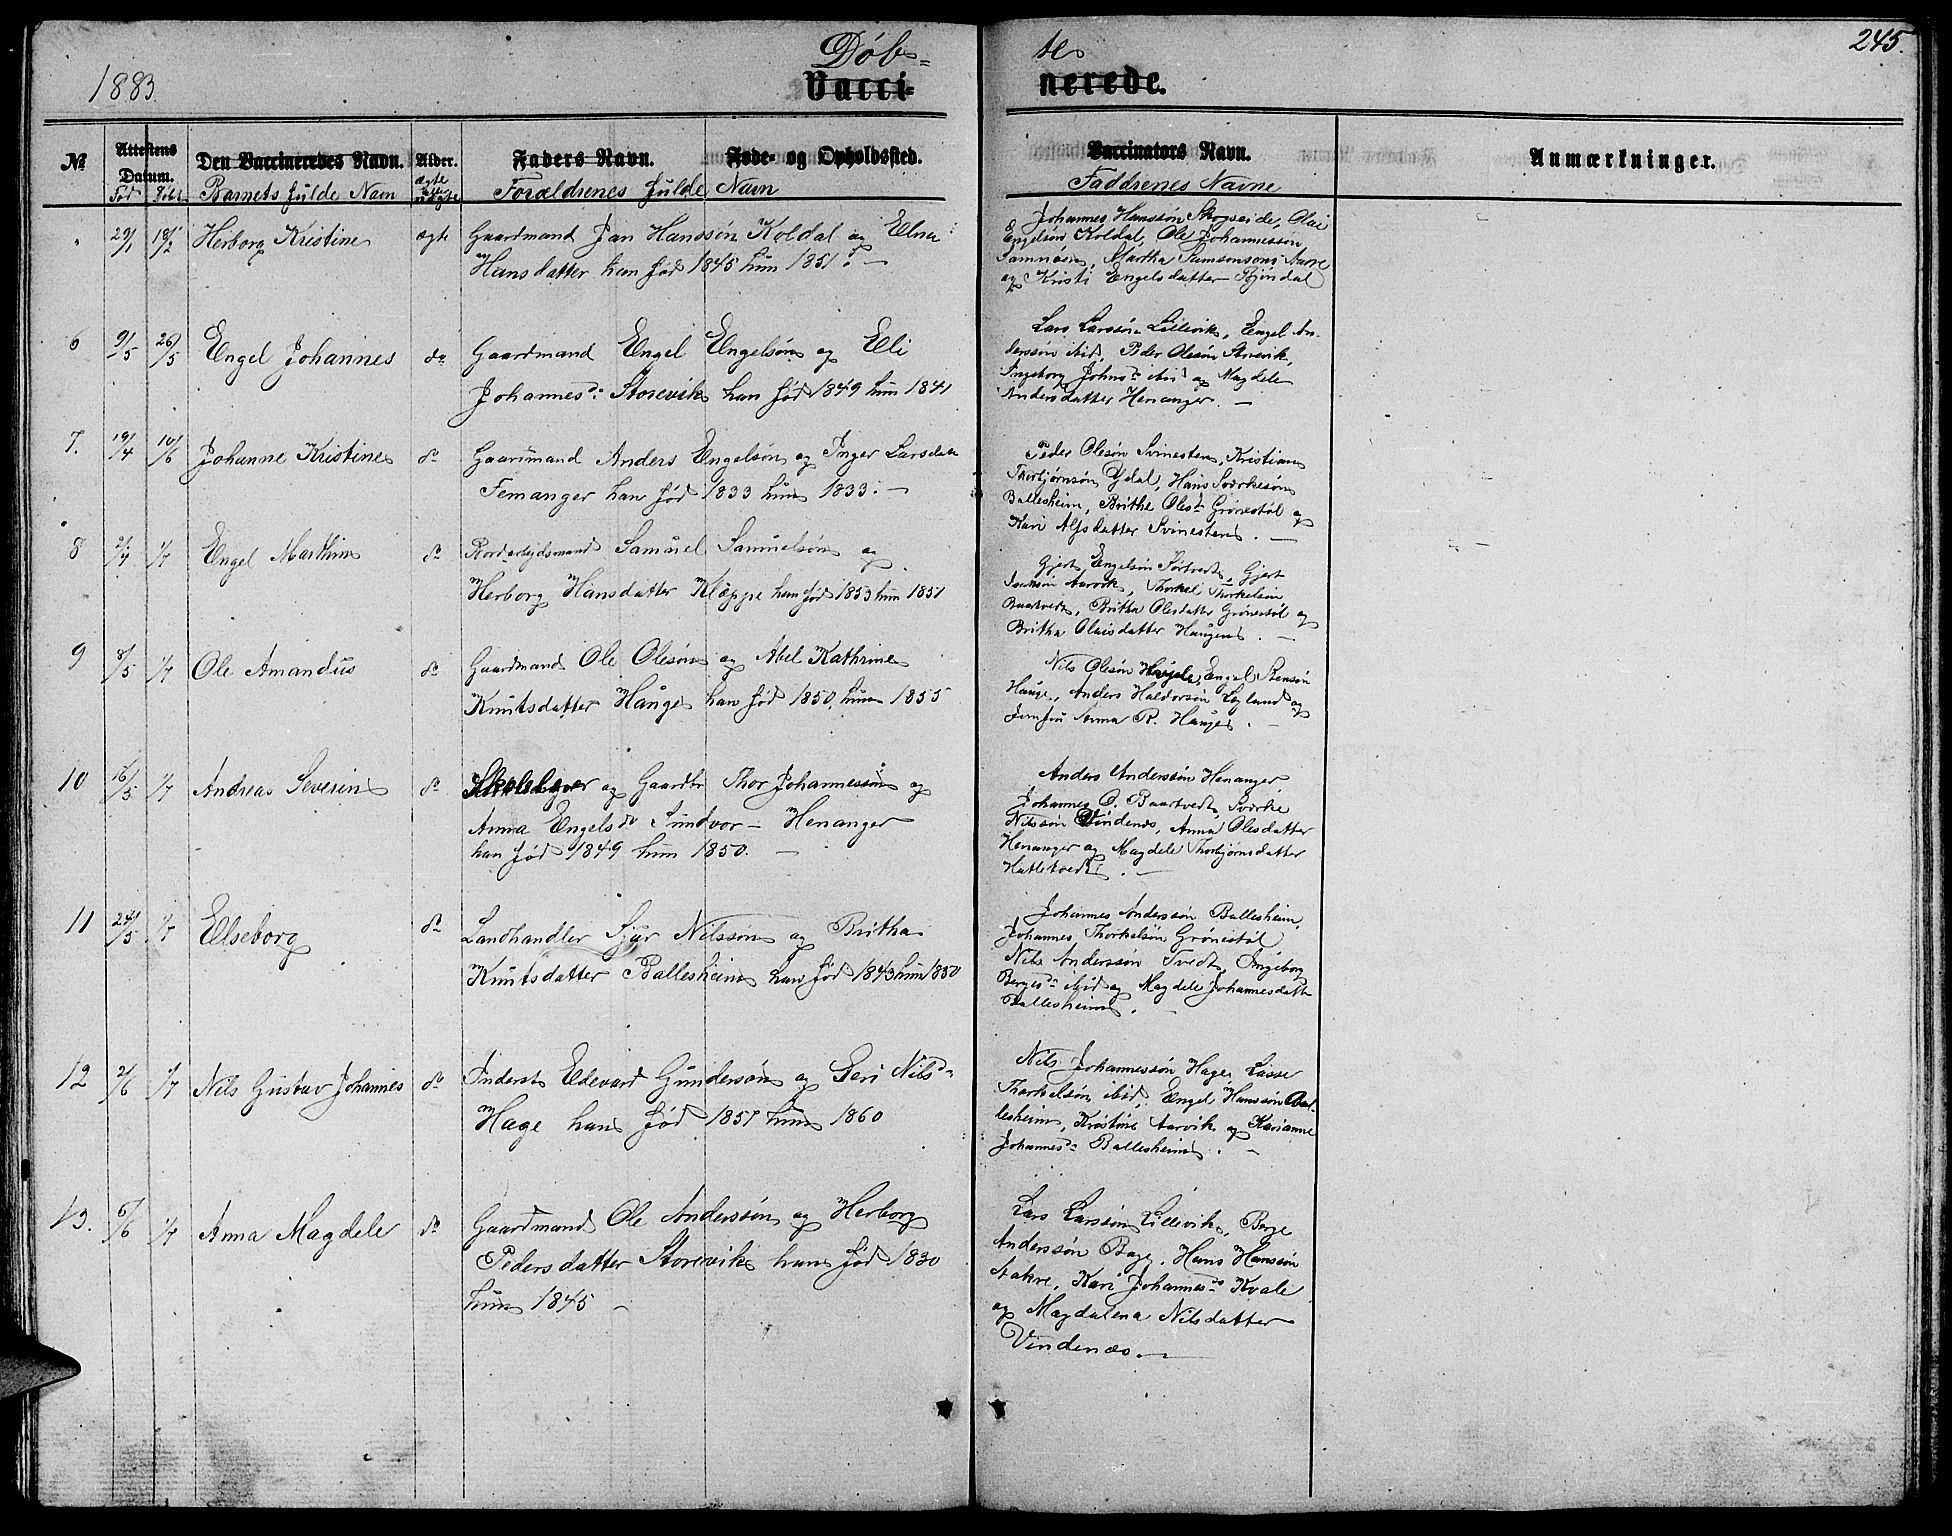 245.
1883.
Døb- te
Vacci- nerede.
№ Attestens Datum. Den Vaccineredes Navn. Alder. Faders Navn. Føde- og Opholdssted. Vaccinators Navn. Anmærkninger.
Fød Døbt Barnets fulde Navn ægte uægte Forældrenes fulde Navn Faddrenes Navne
" 29/1 18/2 Herborg Kristine ægte Gaardmand Jan Hanssøn Koldal og Elna
Hansdatter han fød 1845 hun 1851. —
Johannes Hanssøn Skogseide, Olai
Engelsøn Koldal, Ole Johannessøn
Samnøen, Martha Samsonsons Aavre
og Kristi Engelsdatter Bjøndal
6 9/5 26/5 Engel Johannes do Gaardmand Engel Engelsøn og Eli
Johannesd: Storevik han fød 1849 hun 1841
Lars Larssøn Lillevik, Engel An-
derssøn ibid, Peder Olesøn Storevik,
Ingeborg Johnsd: ibid og Magdele
Andersdatter Henanger. —
7. 19/4 10/6 Johanne Kristine do Gaardmand Anders Engelsøn og Inger Larsdatter
Femanger han fød 1833 hun 1833. —
Peder Olesøn Svinesten, Kristian
Thorbjørnsøn Ydal, Hans Sverkesøn
Ballesheim, Brithe Olesd: Grønestøl og
Kari Alfsdatter Svinesten. —
8 2/4 1/7 Engel Marthin do Bordarbejdsmand Samuel Samuelsøn og
Herborg Hansdatter Kleppe han fød 1853 hun 1851
Gjert Engelsøn Sørtvedt, Gjert
Aarvik, Thorkel Thorkelsøn
Baartvedt, Britha Olesdatter Grønestøl og
Britha Olaisdatter Haugen. —
9 8/5 1/7 Ole Amandus do Gaardmand Ole Olesøn og Abel Kathrine
Knutsdatter Hauge han fød 1850, hun 1855
Nils Olesøn Hauge, Engel Stensøn
Hauge, Anders Haldorsøn Legland og
Jomfru Anna R. Hauge. —
10 16/5 1/7 Andreas Severin do Skolelærer og Gaardbr Thor Johannessøn og
Anna Engelsdr Sundvor — Henanger
han fød 1849 hun 1850. —
Anders Anderssøn Henanger,
Johannes O. Baartvedt, Sverke
Nilssøn Vindenes, Anna Olesdatter
Henanger og Magdele Thorbjørnsdatter
Hatletvedt. —
11 24/5 1/7 Elseborg do Landhandler Sjur Nilssøn og Britha
Knutsdatter Ballesheim han fød 1843 hun 1850
Johannes Anderssøn Ballesheim,
Johannes Thorkelsøn Grønestøl,
Nils Anderssøn Tvedt, Ingeborg
Bergesd: ibid og Magdele Johannesdatt
Ballesheim.
12 2/6 1/7 Nils Gustav Johannes do Inderst Edevard Gundersøn og Geri Nilsd:
Hage han fød 1851 hun 1860
Nils Johannessøn Hage, Lasse
Thorkelsøn ibid, Engel Hanssøn Bal-
lesheim, Kristine Aarvik og Karianne
Johannesd: Ballesheim. —
13. 6/6 1/7 Anna Magdele do Gaardmand Ole Anderssøn og Herborg
Pedersdatter Storevik han fød 1830
hun 1845 —
Lars Larssøn Lillevik, Berge
Anderssøn Boge, Hans Hanssøn
Aakre, Kari Johannesd: Kvale
og Magdalena Nilsdatter
Vindenes. —